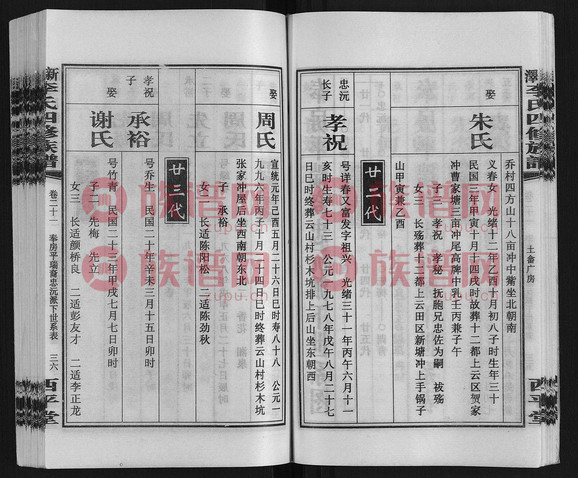 乔村四方山十八亩冲中觜坐北朝南
娶
朱氏
义春女 光绪十二年乙酉十月初八子时生年三十
民国三年甲寅十月四戌时故葬十二都上云区贺家
冲曹家塘三亩冲尾高牌中乳壬丙兼子午
子二 孝祝 孝秘 抚胞兄忠佐为嗣 祓殇
女三 长殇葬十二都上云田区新塘冲上手锅子
山甲寅兼乙酉
廿四代
忠沅
长子
孝祝
号详春又富发字祖兴 光绪三十一年丙午六月十一
亥时生寿七十三 公元一九七八年戊午八月二十七
日巳时终葬云山村杉木坑排上后山坐东朝西
娶
周氏
宣统元年己酉五月二十六日巳时寿八十八 公元一
九九六年丙子十月二十四日巳时终葬云山村杉木坑
张家冲屋后坐西南朝东北
子 承裕
女二 长适陈阳松 二适陈劲秋
廿五代
孝祝
子
承裕
号乔生 民国二十年辛未三月十五日卯时
娶
谢氏
号竹青 民国二十三年甲戌七月七日卯时
子二 先梅 先立
女三 长适颜桥良 二适彭友才 三适李正龙
李氏四修族谱
土畲广房
西平堂
新
李氏四修族谱
卷二十一
奉房平瑞裔忠沅派下世系表
三六
西平堂
族谱网